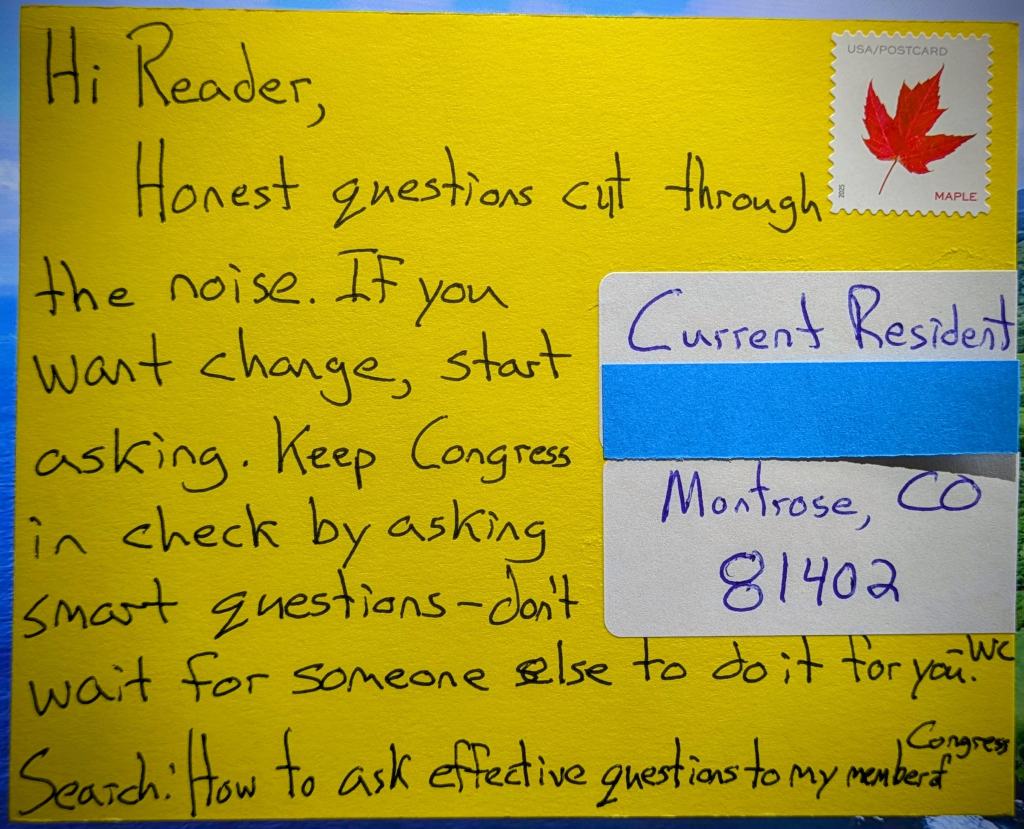 Hi Reader,
USA/POSTCARD
2025
MAPLE
Honest questions cut through
the noise. If you
want change, start
asking. Keep Congress
in check by asking
smart questions-don't
wait for someone else to do it for you. WC
Search: How to ask effective questions to my member of Congress
Current Resident
Montrose, CO
81402